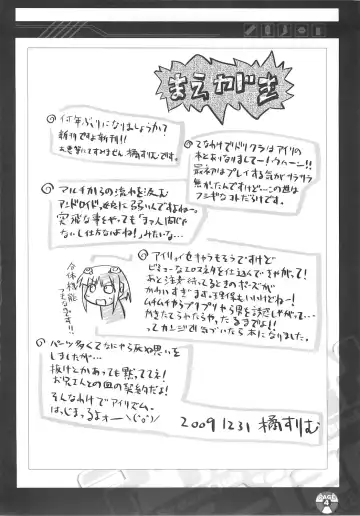 まえがき
何年ぶりになりましょうかね
新刊ですよ新刊!!
お世話してすみません 橘すりむです。
てなわけでドリクラはアイリの
本とありなりましてー!ウハーン!!
最初はプレイする気がサラサラ
無かったんですけど…この世は
フシギなコトだらけです。
マルチからの流れを汲む
アンドロイド娘に弱いんですよねー。
突飛な事をやっても「まァ人間じゃ
ないし仕方ないよね!」みたいな…
アイリってキャラもうですけど
ピュアーなエロスネタを仕込んできやがって!
あと注文待ってるときのポーズが
かわいすぎます。王野球もいいけどねー!
ムチムチやらプリプリやら男を誘惑しやがって…
かきたてられたらやったるまでよ!!
ってカンジで気づいたら本になりました。
合体機能
つきなです!!
パーツ多くてなにやら灰ぬ思いを
しましたが…
抜けとかあっても黙っててネ!
お兄さんとの血の契約だよ!
そんなわけでアイリズム。
はっじまーるよォー\(^o^)/
20091231 橘すりむ
PAGE
4